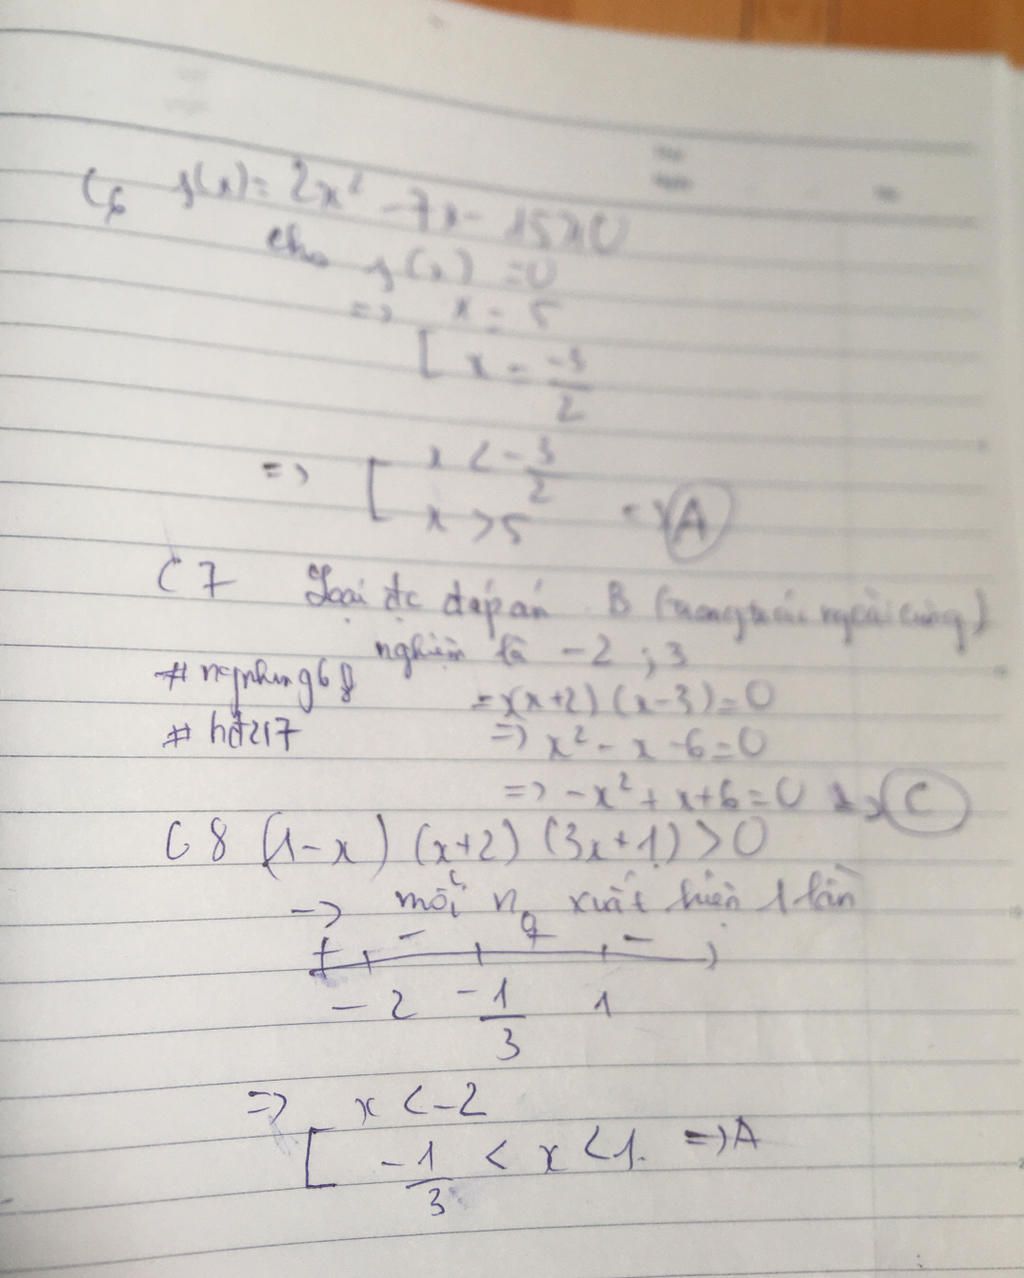 C6 f(x) = 2x² - 7x - 15 > 0
cho f(x) = 0
=> x = 5
[ x = -3/2
=> [ x < -3/2
x > 5 => A
C7 Loại đc đáp án B (trong trái ngoài cùng)
nghiệm là -2 ; 3
# ngnhung68 => (x+2) (x-3) = 0
# hđ217 => x² - x - 6 = 0
=> -x² + x + 6 = 0 => C
C8 (1-x) (x+2) (3x+1) > 0
-> mỗi nº xuất hiện 1 lần
+ - + -
-2 -1/3 1
=> x < -2
[ -1/3 < x < 1. => A